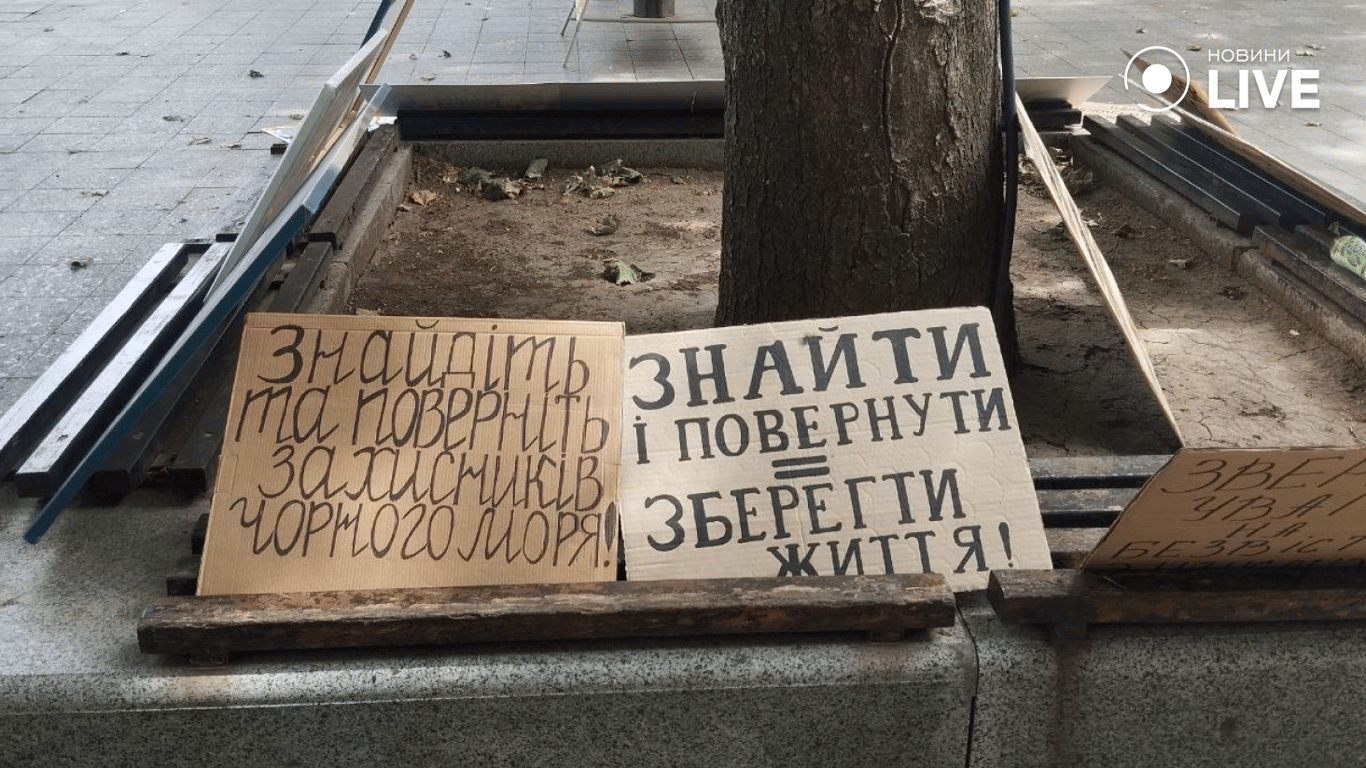 НОВИНИ
LIVE
Знайдіть
та поверніть
захисників
Чорного моря!
ЗНАЙТИ
І ПОВЕРНУТИ
=
ЗБЕРЕГТИ
ЖИТТЯ!
НА